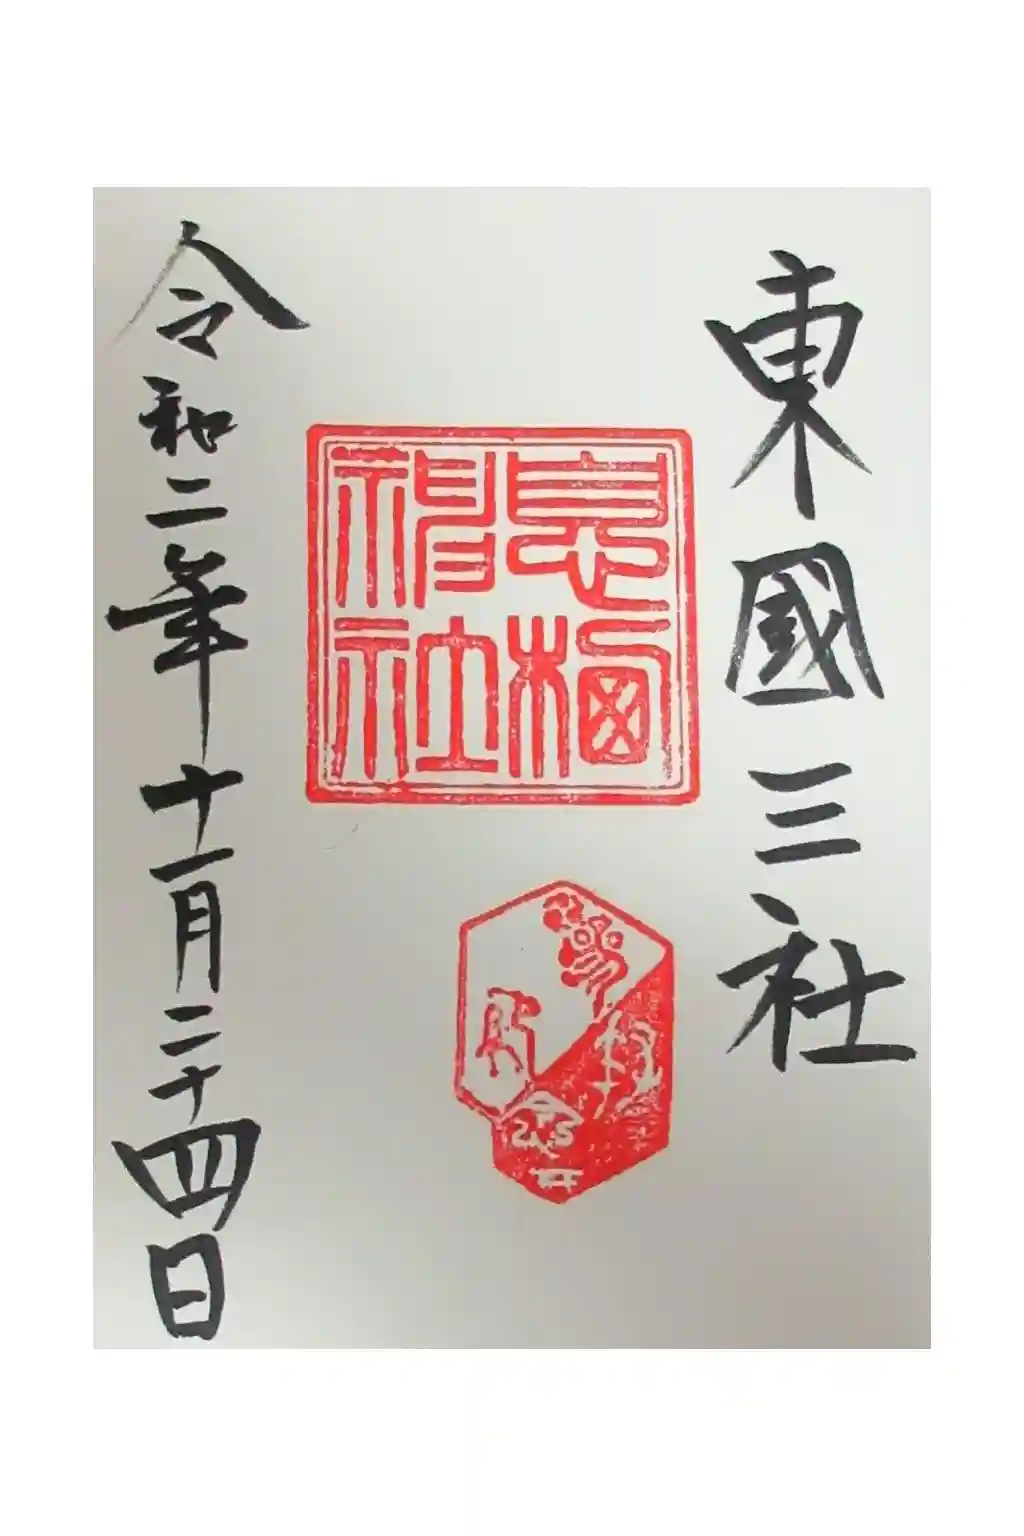 東國三社
息栖
神社
令和二年十一月二十四日